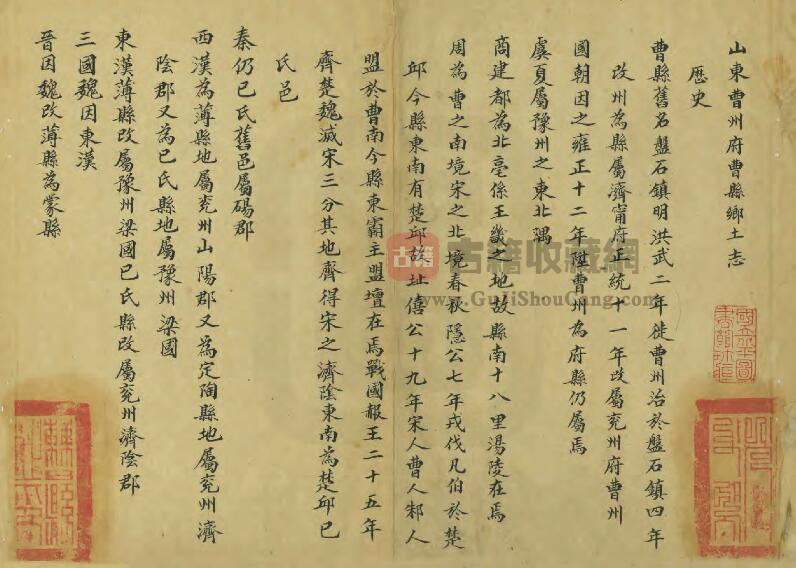 山東曹州府曹縣鄉土志
歷史
曹縣舊名盤石鎮明洪武二年徙曹州治於盤石鎮四年
改州為縣屬濟甯府正統十一年改屬兖州府曹州
國朝因之雍正十二年陞曹州為府縣仍屬焉
虞夏屬豫州之東北隅
商建都為北亳係王畿之地故縣南十八里湯陵在焉
周為曹之南境宋之北境春秋隱公七年戎伐凡伯於楚
邱今縣東南有楚邱故址僖公十九年宋人曹人邾人
盟於曹南今縣東霸主盟壇在焉戰國赧王二十五年
齊楚魏滅宋三分其地齊得宋之濟陰東南為楚邱已
氏邑
秦仍已氏舊邑屬碭郡
西漢為薄縣地屬兖州山陽郡又為定陶縣地屬兖州濟
陰郡又為已氏縣地屬豫州梁國
東漢薄縣改屬豫州梁國已氏縣改屬兖州濟陰郡
三國魏因東漢
晉因魏改薄縣為蒙縣
古籍
古籍收藏網
www.GuJiShouCang.com